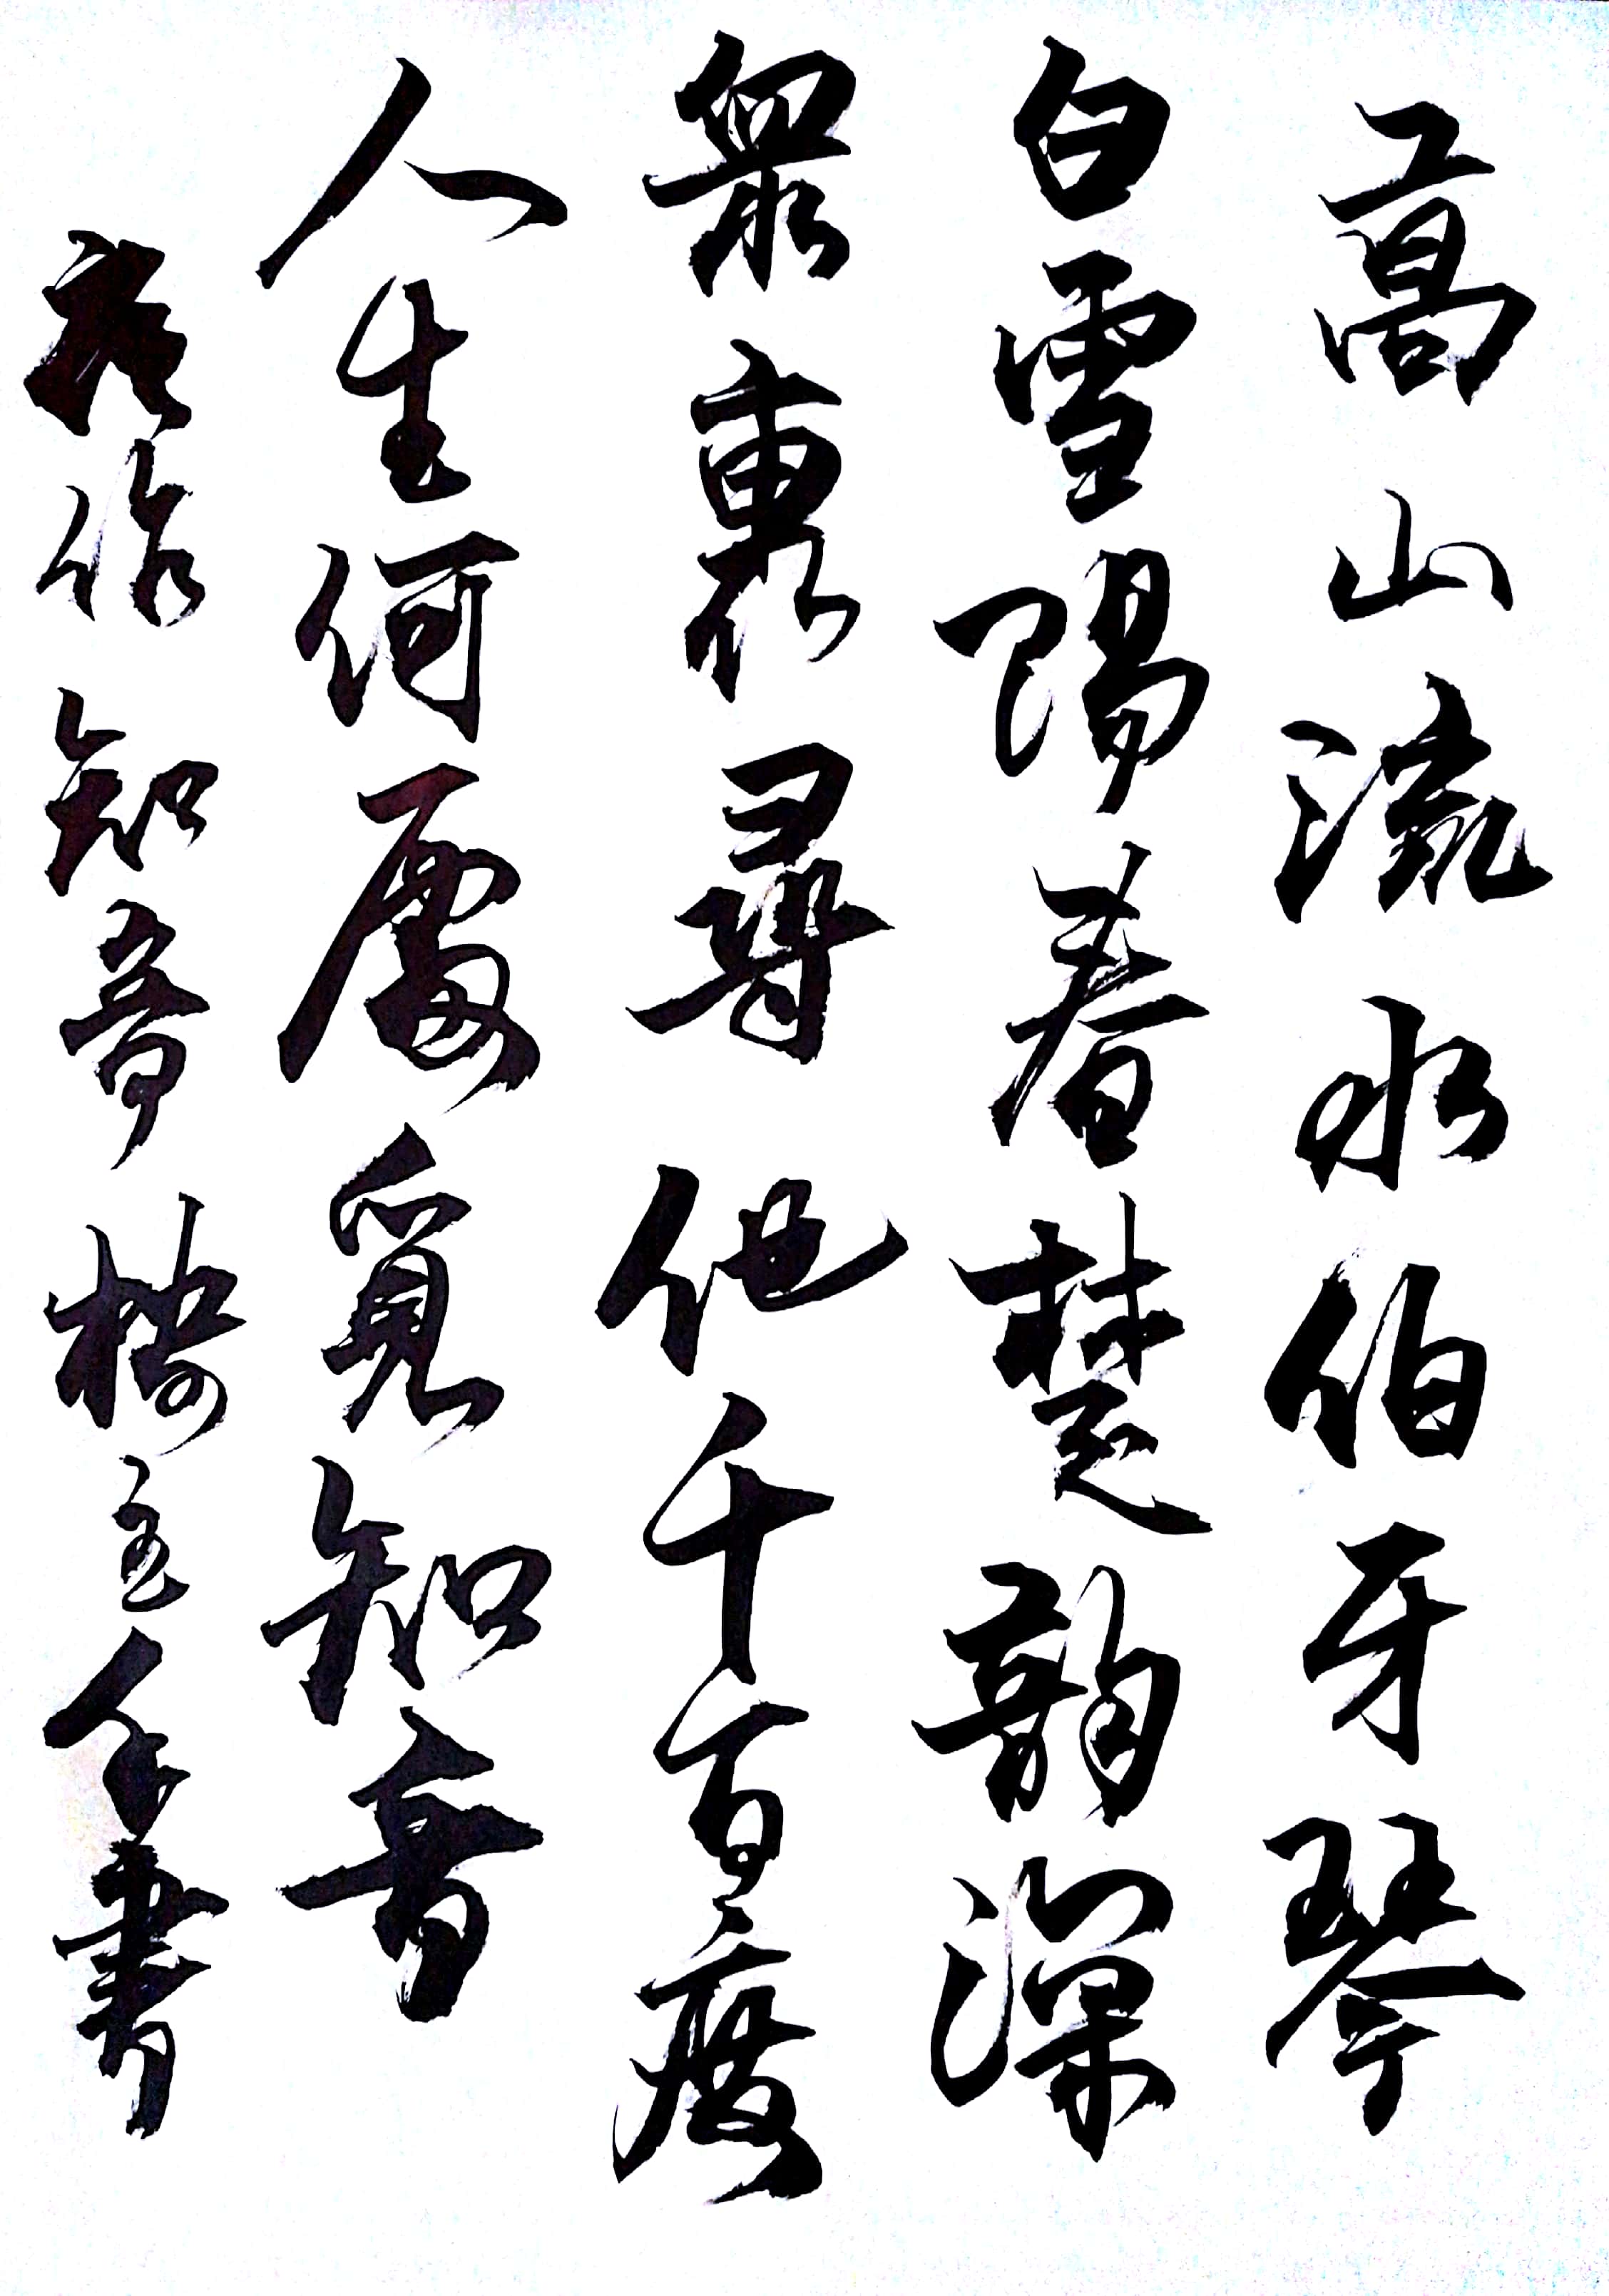 高山流水伯牙琴
白雪陽春楚韵深
眾裏尋他千百度
人生何處覓知音
舊作知音 樓主人書